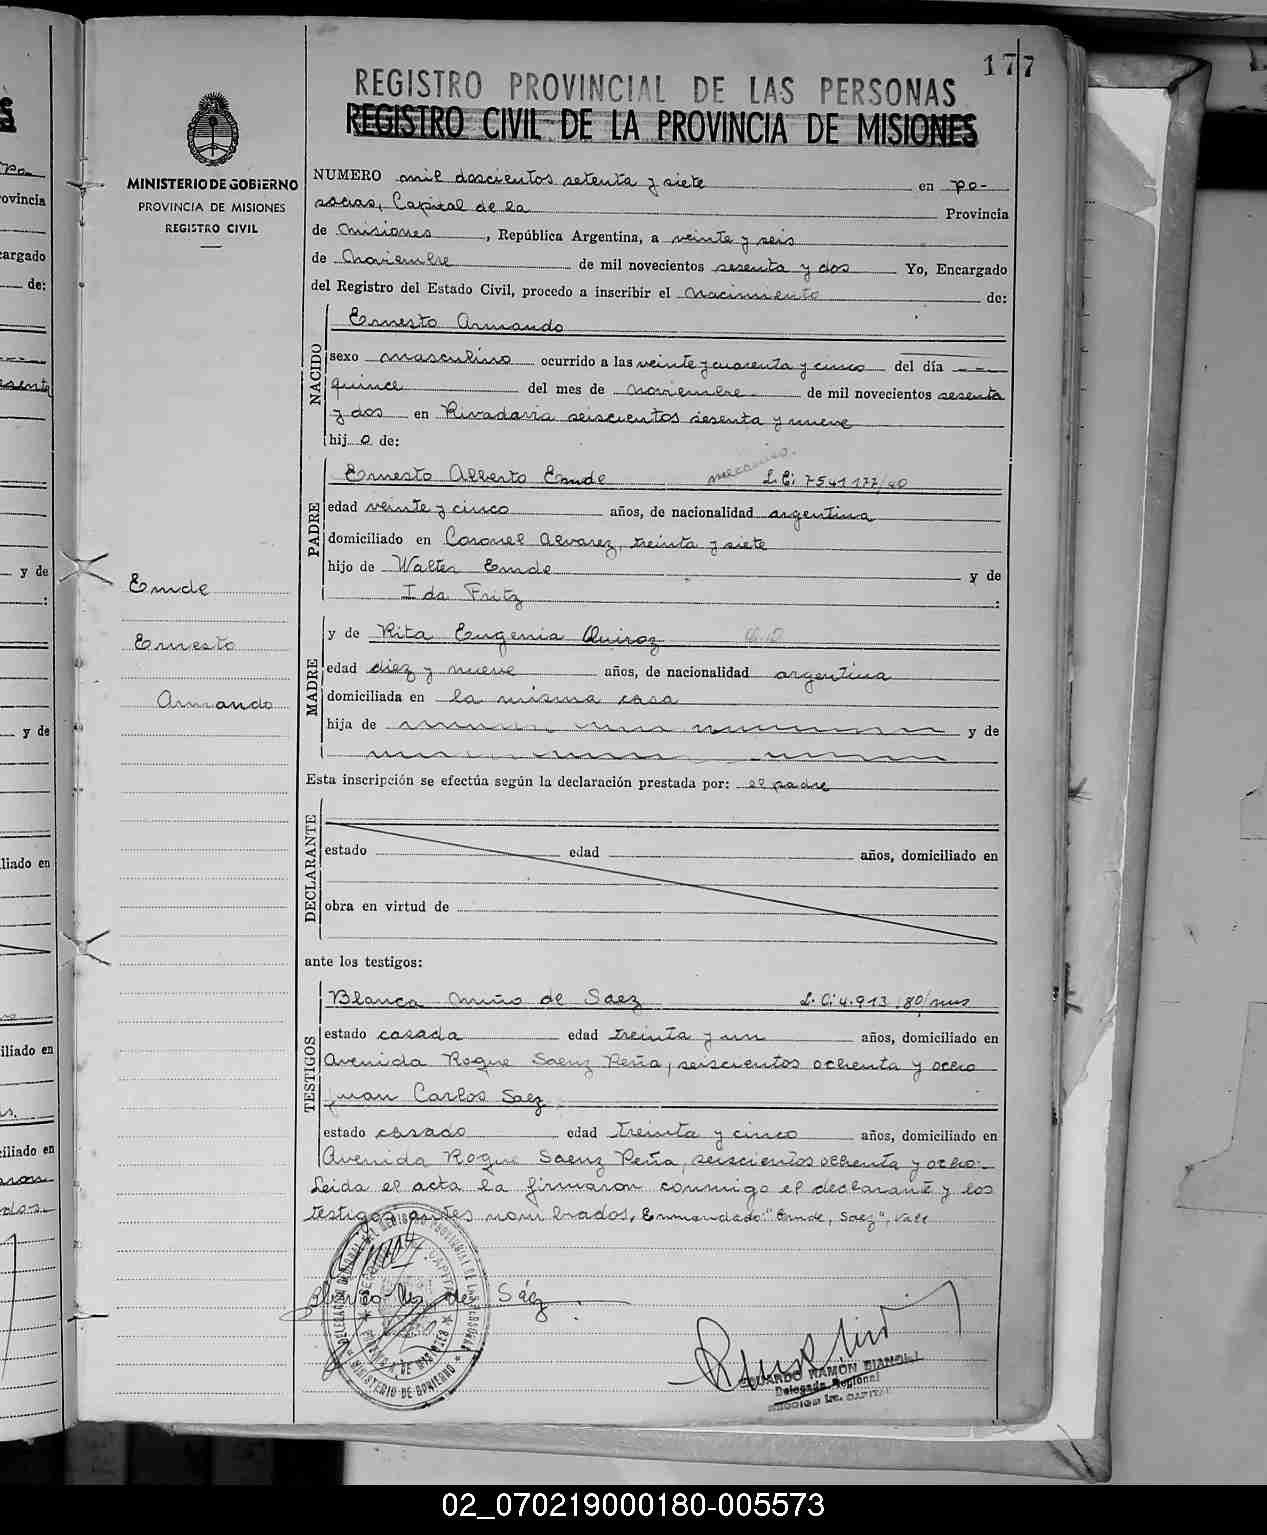 177
REGISTRO PROVINCIAL DE LAS PERSONAS
REGISTRO CIVIL DE LA PROVINCIA DE MISIONES
MINISTERIO DE GOBIERNO
PROVINCIA DE MISIONES
REGISTRO CIVIL
NUMERO mil doscientos setenta y siete en Po-
sadas, Capital de la Provincia
de Misiones, República Argentina, a veinte y seis
de Noviembre de mil novecientos sesenta y dos Yo, Encargado
del Registro del Estado Civil, procedo a inscribir el Nacimiento de:
NACIDO
Ernesto Armando
sexo masculino ocurrido a las veinte y cuarenta y cinco del día
quince del mes de noviembre de mil novecientos sesenta
y dos en Rivadavia seiscientos sesenta y nueve
hijo de:
PADRE
Ernesto Alberto Emde mecanico. L.E: 7541177/40
edad veinte y cinco años, de nacionalidad argentina
domiciliado en Coronel Alvarez, treinta y siete
hijo de Walter Emde y de
Ida Fritz :
Emde
Ernesto
Armando
MADRE
y de Rita Eugenia Quiroz
edad diez y nueve años, de nacionalidad argentina
domiciliada en la misma casa
hija de y de
Esta inscripción se efectúa según la declaración prestada por: el padre
DECLARANTE
estado edad años, domiciliado en
obra en virtud de
ante los testigos:
TESTIGOS
Blanca Miño de Saez L.C: 4.913.80/
estado casada edad treinta y un años, domiciliado en
Avenida Roque Saenz Peña, seiscientos ochenta y ocho
Juan Carlos Saez
estado casado edad treinta y cinco años, domiciliado en
Avenida Roque Saenz Peña, seiscientos ochenta y ocho.-
Leida el acta la firmaron conmigo el declarante y los
testigos antes nombrados. Enmendado: "Emde, Saez", Vale
de Sáez
MINISTERIO DE GOBIERNO
EDUARDO RAMÓN BIANCHI
Delegado Regional
02_070219000180-005573